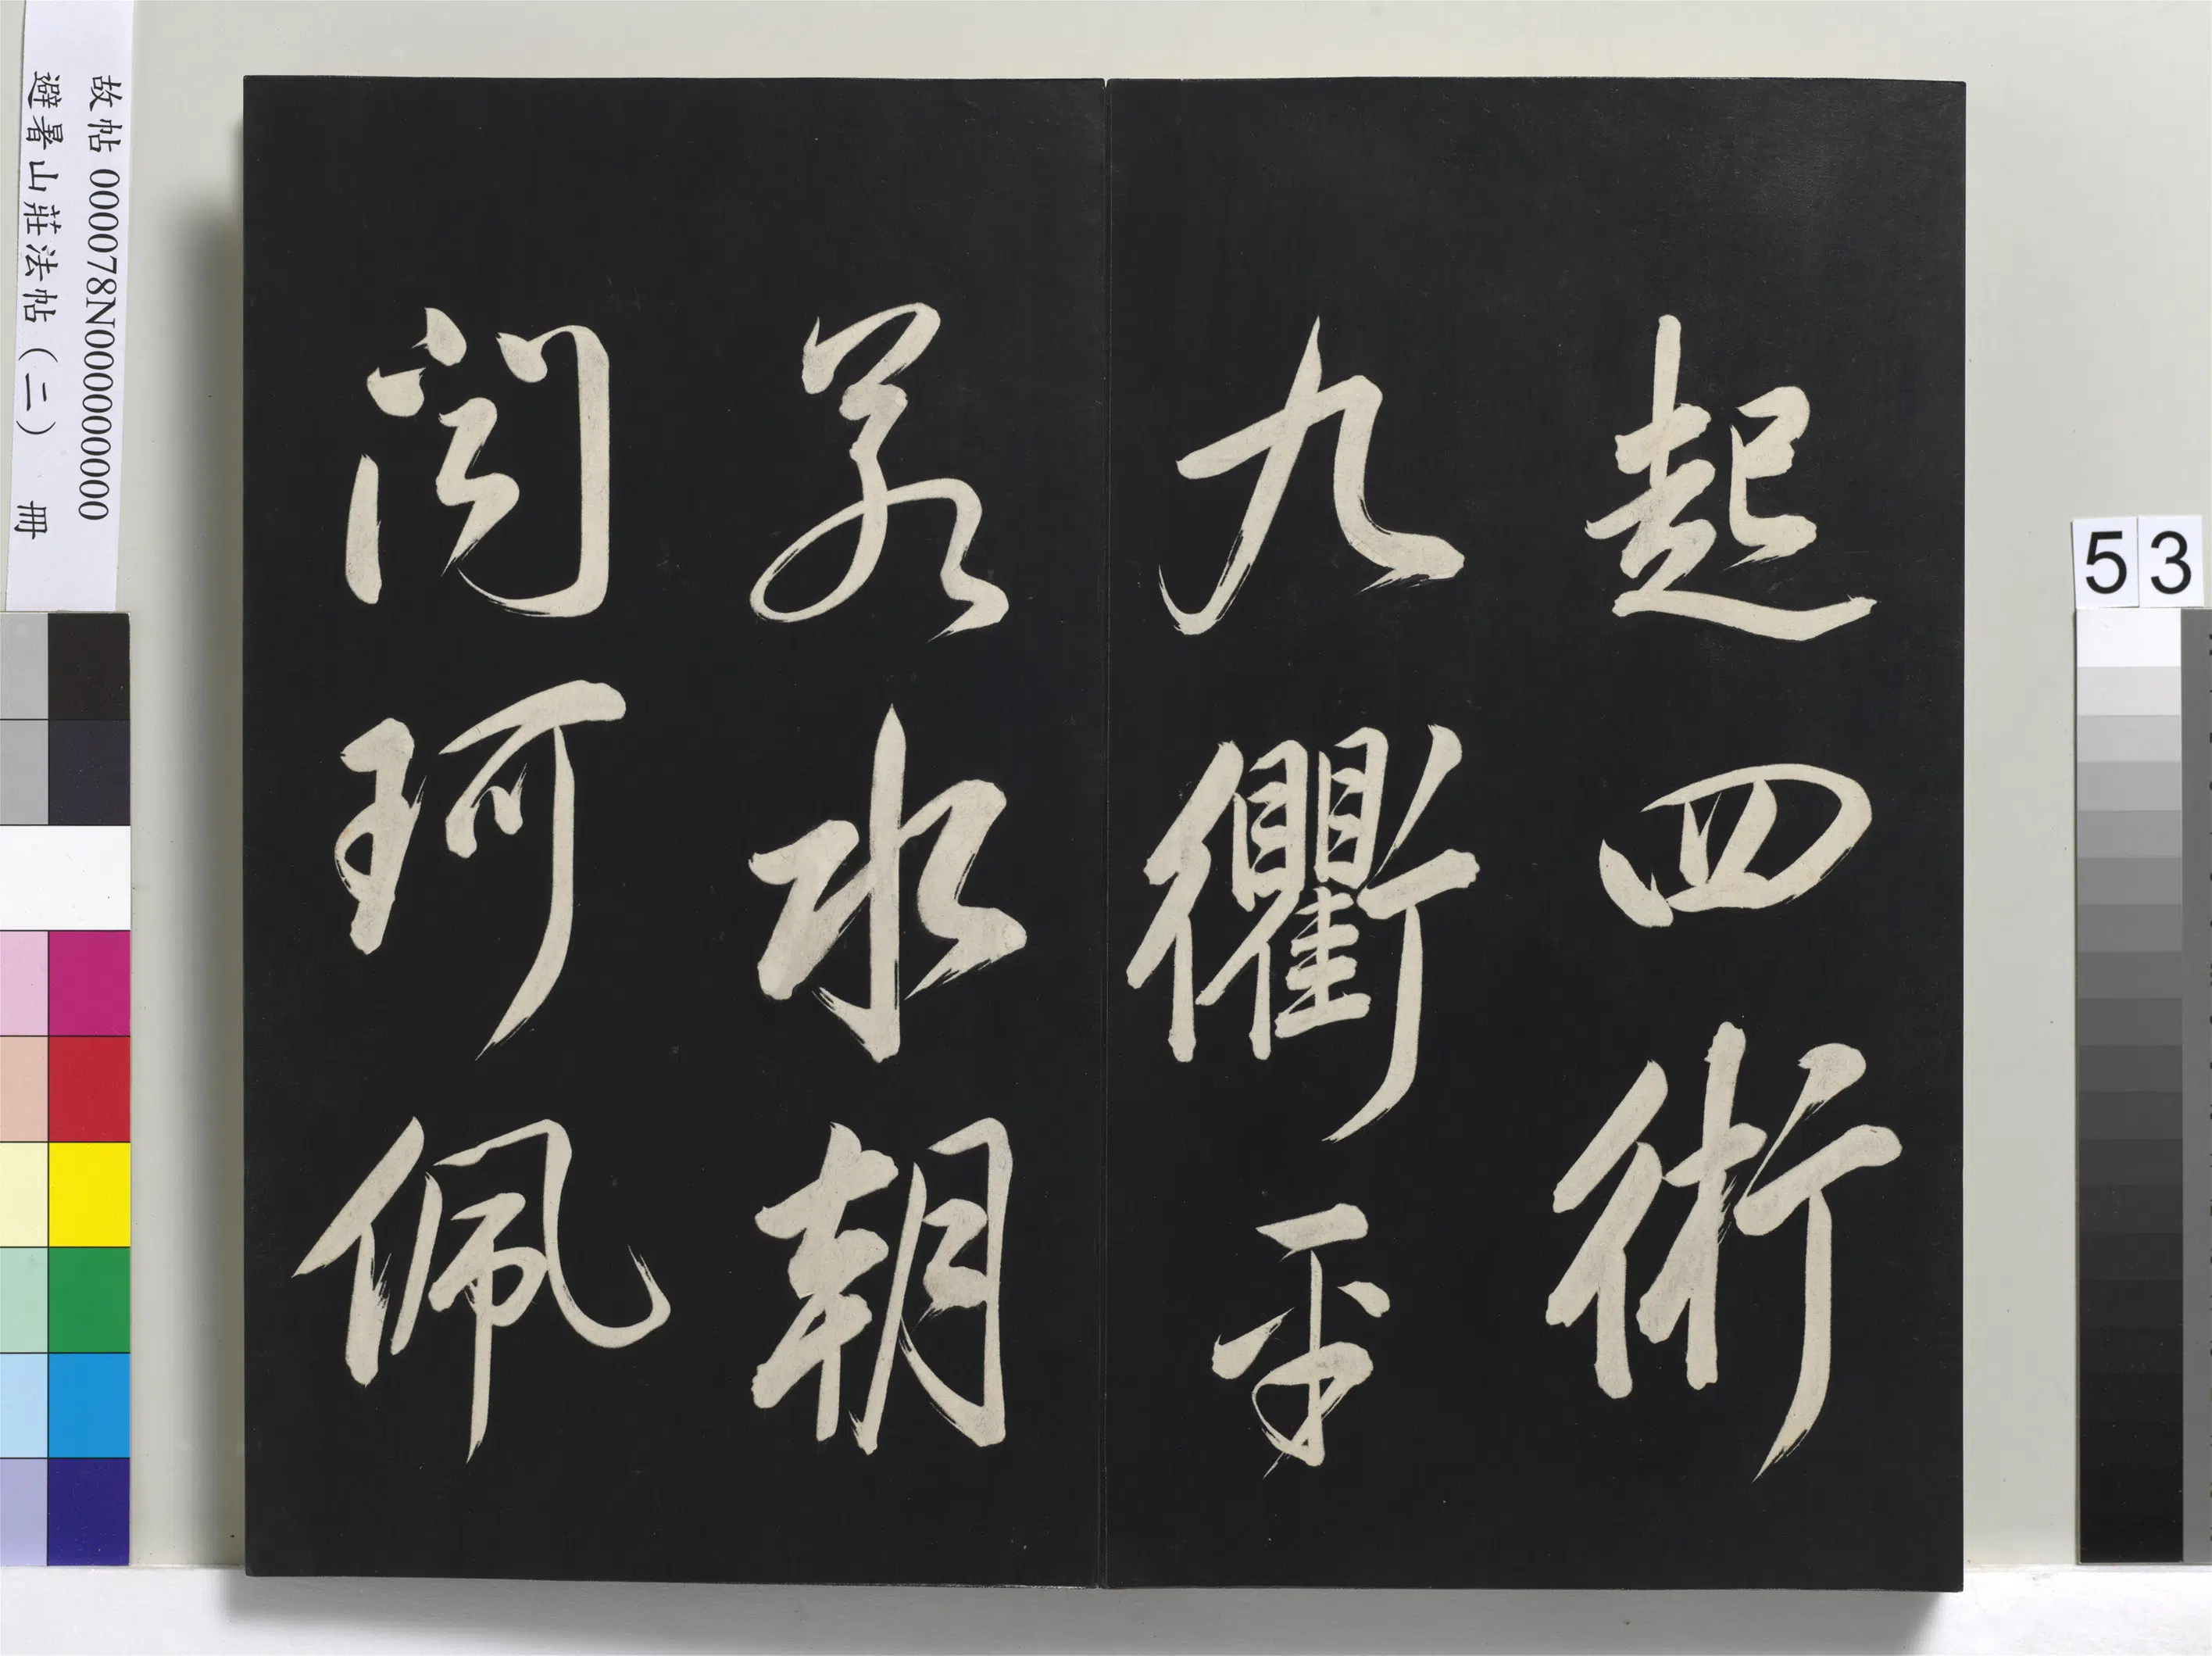 起四術
九衢平
若水朝
闻珂佩
故帖 000078N000000000
避暑山莊法帖（二） 冊
53